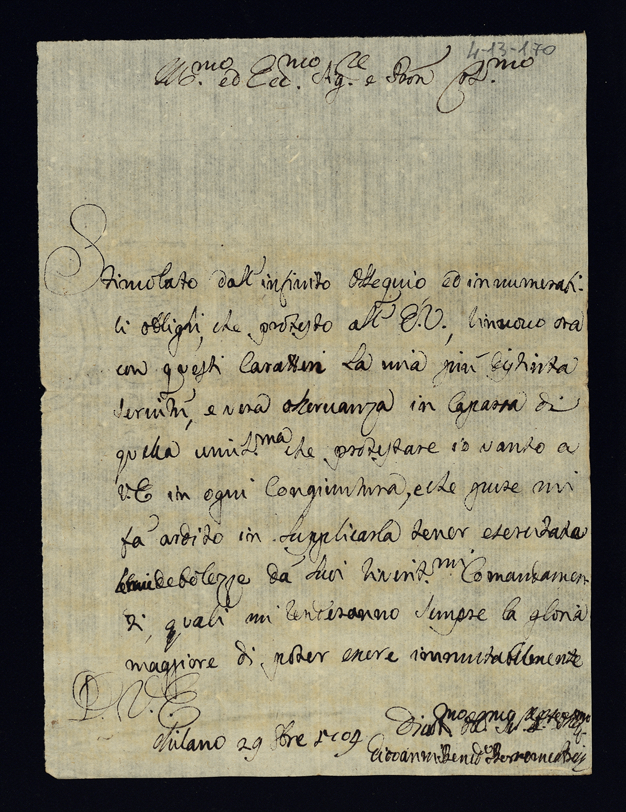 4-13-170
Ill.mo ed Ecc.mo Sig.re e Pron Col.mo
Stimolato dall'infinito Ossequio ed innumerabi-
li oblighi, che protesto all' E.V., Rinuovo ora
con questi Caratteri La mia più distinta
Servitù, e vera osservanza in Caparra di
quella umil.ma che protestare io vanto a
V.E in ogni Congiuntura, e che pure mi
fa ardito in Supplicarla tener esercitata
debolezze da' Suoi River.mi Comandamen-
ti, quali mi renderanno Sempre la gloria
maggiore di poter essere immutabilmente
D. V. E.
Milano 29
Giovanni Bened.